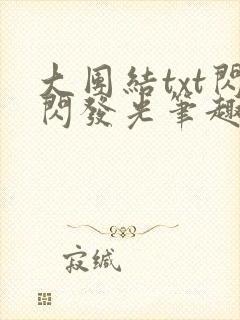 大團結txt閃
閃發光筆趣
寂缄